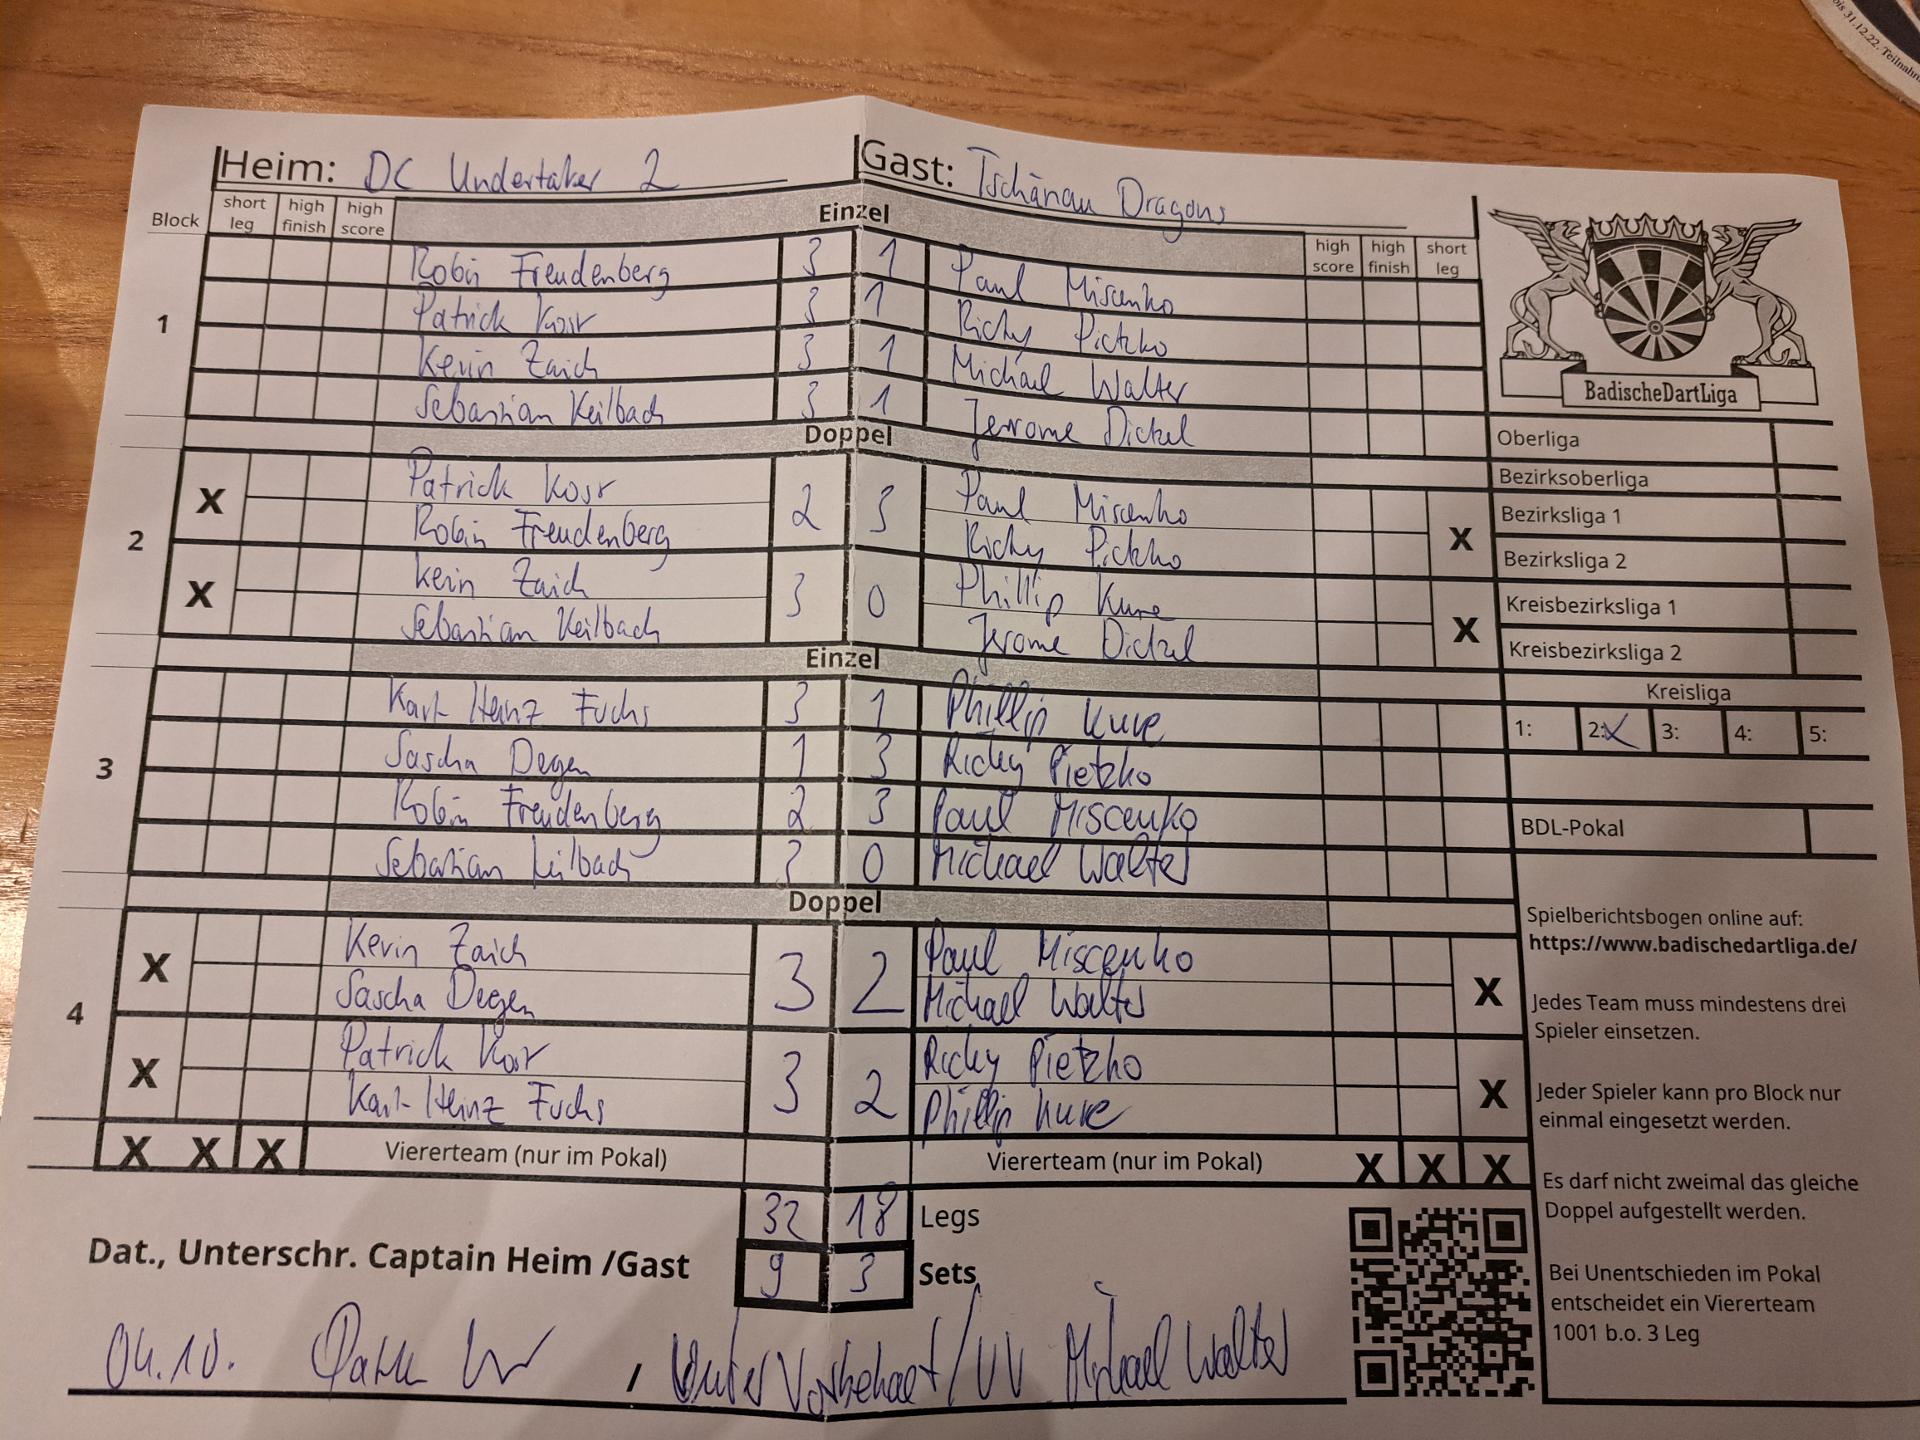 bis 31.12.22. Teilnahm
Heim: DC Undertaker 2 Gast: Tschänau Dragons
Block short leg high finish high score Einzel high score high finish short leg
1
Robin Freudenberg 3 1 Paul Miscenko
Patrick Kosr 3 1 Ricky Pietzko
Kevin Zaich 3 1 Michael Walter
Sebastian Keilbach 3 1 Jerrome Dickel
Doppel
2
X Patrick Kosr 2 3 Paul Miscenko X
Robin Freudenberg Ricky Pietzko
X Kevin Zaich 3 0 Phillip Kure X
Sebastian Keilbach Jerome Dickel
Einzel
3
Karl-Heinz Fuchs 3 1 Phillip Kure
Sascha Degen 1 3 Ricky Pietzko
Robin Freudenberg 2 3 Paul Miscenko
Sebastian Keilbach 3 0 Michael Walter
Doppel
4
X Kevin Zaich 3 2 Paul Miscenko X
Sascha Degen Michael Walter
X Patrick Kosr 3 2 Ricky Pietzko X
Karl-Heinz Fuchs Phillip Kure
X X X Viererteam (nur im Pokal) Viererteam (nur im Pokal) X X X
32 18 Legs
Dat., Unterschr. Captain Heim /Gast 9 3 Sets
04.10. / Unter Vorbehalt/UV Michael Walter
BadischeDartLiga
Oberliga
Bezirksoberliga
Bezirksliga 1
Bezirksliga 2
Kreisbezirksliga 1
Kreisbezirksliga 2
Kreisliga
1: 2:X 3: 4: 5:
BDL-Pokal
Spielberichtsbogen online auf:
https://www.badischedartliga.de/
Jedes Team muss mindestens drei
Spieler einsetzen.
Jeder Spieler kann pro Block nur
einmal eingesetzt werden.
Es darf nicht zweimal das gleiche
Doppel aufgestellt werden.
Bei Unentschieden im Pokal
entscheidet ein Viererteam
1001 b.o. 3 Leg